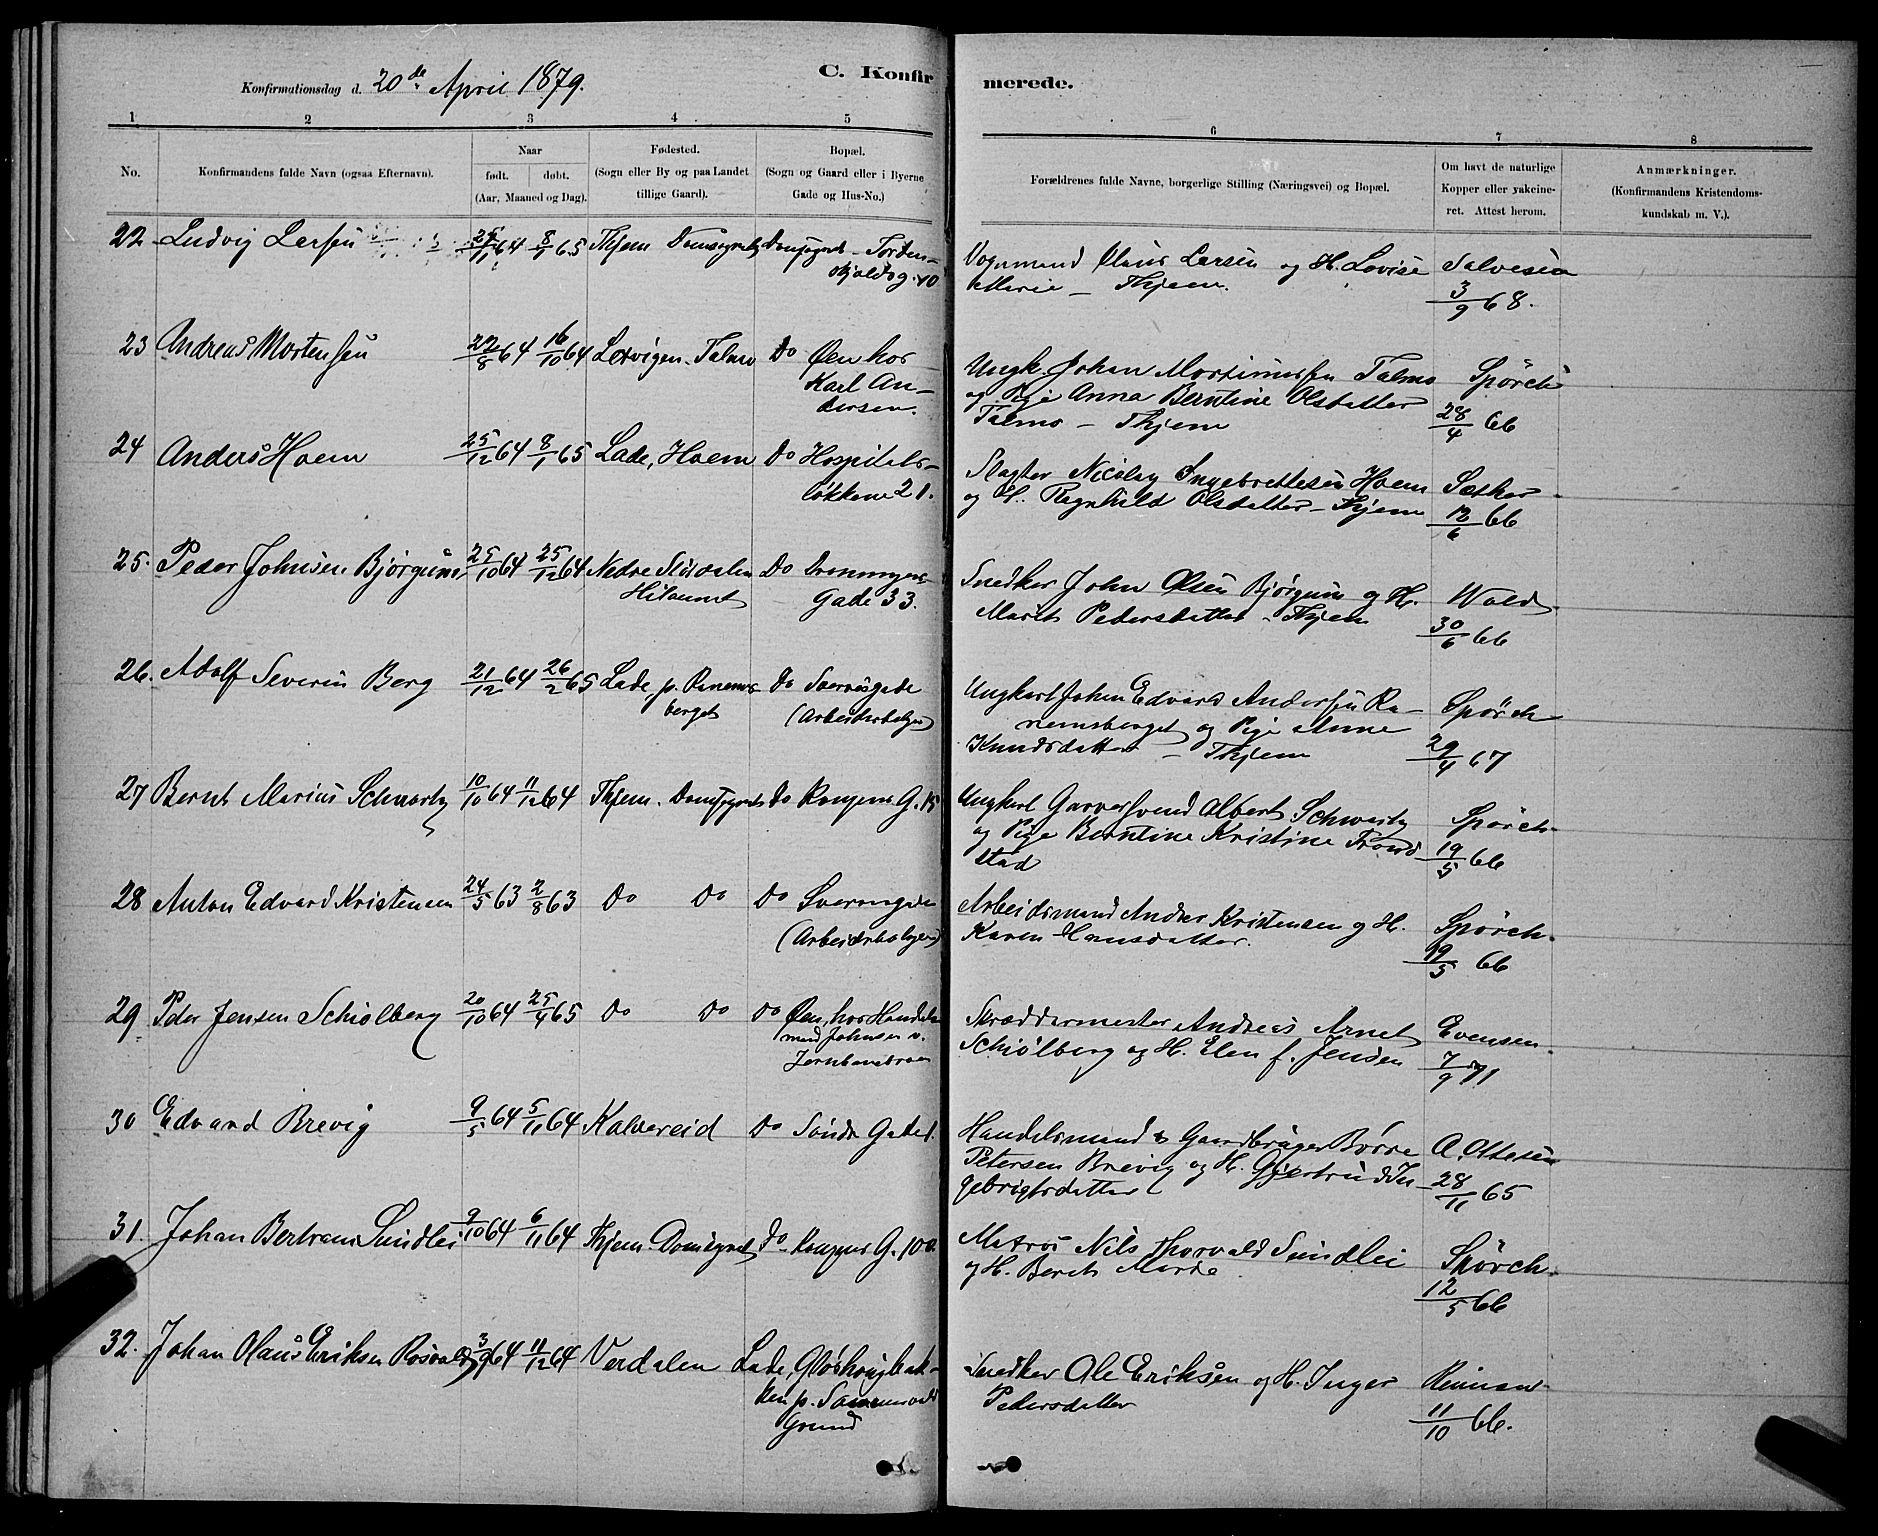 Konfirmationsdag d. 20de April 1879.
C. Konfirmerede.
1 2 3 4 5 6 7 8
No.
Konfirmandens fulde Navn (ogsaa Efternavn).
Naar
født. døbt.
(Aar, Maaned og Dag).
Fødested.
(Sogn eller By og paa Landet
tillige Gaard).
Bopæl.
(Sogn og Gaard eller i Byerne
Gade og Hus-No.)
Forældrenes fulde Navne, borgerlige Stilling (Næringsvei) og Bopæl.
Om havt de naturlige
Kopper eller vakcine-
ret. Attest herom.
Anmærkninger.
(Konfirmandens Kristendoms-
kundskab m. V.).
22. Ludvig Larsen 64 8/1 65 Thjem Domsognet Domsognet Torden-
skjoldsg. 10
Vognmand Claus Larsen og H. Lovise
Marie – Thjem.
Salvesen
3/9 68.
23 Andreas Mortensen 22/8 64 16/10 64 Talmo Do Øen hos
Karl An-
dersen.
Ungk. Johan Mortinussen Talmo
og Pige Anna Berntine Olsdatter
Talmo – Thjem
Spörck
28/4 66
24 Anders Haem 25/12 64 8/1 65 Lade, Haem Do Hospitals-
løkkene 21.
Slagter Nicolay Ingebrettesen Haem
og H. Ragnhild Olsdatter – Thjem
Sæther
12/6 66
25. Peder Johnsen Bjørgum 25/10 64 25/12 64 Nedre Stördalen
Do Dronningens
Gade 33.
Snedker John Olsen Bjørgum og H.
Marit Pedersdatter – Thjem
Wold
30/6 66
26. Adolf Severin Berg 21/12 64 26/2 65 Lade p. Ranems-
berget
Do Sverresgade
(Arbeiderboliger)
Ungkarl Johan Edvard Andersen Ra-
nemsberget og Pige Anne
Knudsdatter – Thjem
Spörck
29/4 67
27 Bernt Marius Schwartz 10/10 64 11/12 64 Thjem. Domsognet Do Kongens G. 15
Ungkarl Garversvend Albert Schwartz
og Pige Berntine Kristine Trond-
stad
Spörck
19/5 66
28 Anton Edvard Kristensen 24/5 63 2/8 63 Do Do Do Sverresgade
(Arbeiderboliger)
Arbeidsmand Andreas Kristensen og H.
Karen Hansdatter.
Spörck.
19/5 66
29 Peder Jensen Schiølberg 20/10 64 25/4 65 Do Do Do Øen, hos Handels-
mand Johnsen v.
Jernbanebroen
Skræddermester Andreas Arnet
Schiølberg og H. Elen f. Jensen
Evensen
7/9 71
30 Edvard Brevig 9/5 64 5/11 64 Kalvereid Do Søndre Gade 1.
Handelsmand & Gaardbruger Børre
Petersen Brevig og H. Gjertrud In-
gebrigtsdatter
O. Ottesen
28/11 65
31. Johan Bertram Sundlei 9/10 64 6/11 64 Thjem. Domsognet Do Kongens G. 100.
Matros Nils Thorvald Sundlei
og H. Berit Marta
Spörck.
12/5 66
32. Johan Olaus Eriksen Rosvold 3/9 64 11/12 64 Verdalen Lade, Gløshougbak-
ken p.
Grund
Snedker Ole Eriksen og H. Inger
Pedersdatter
11/10 66.